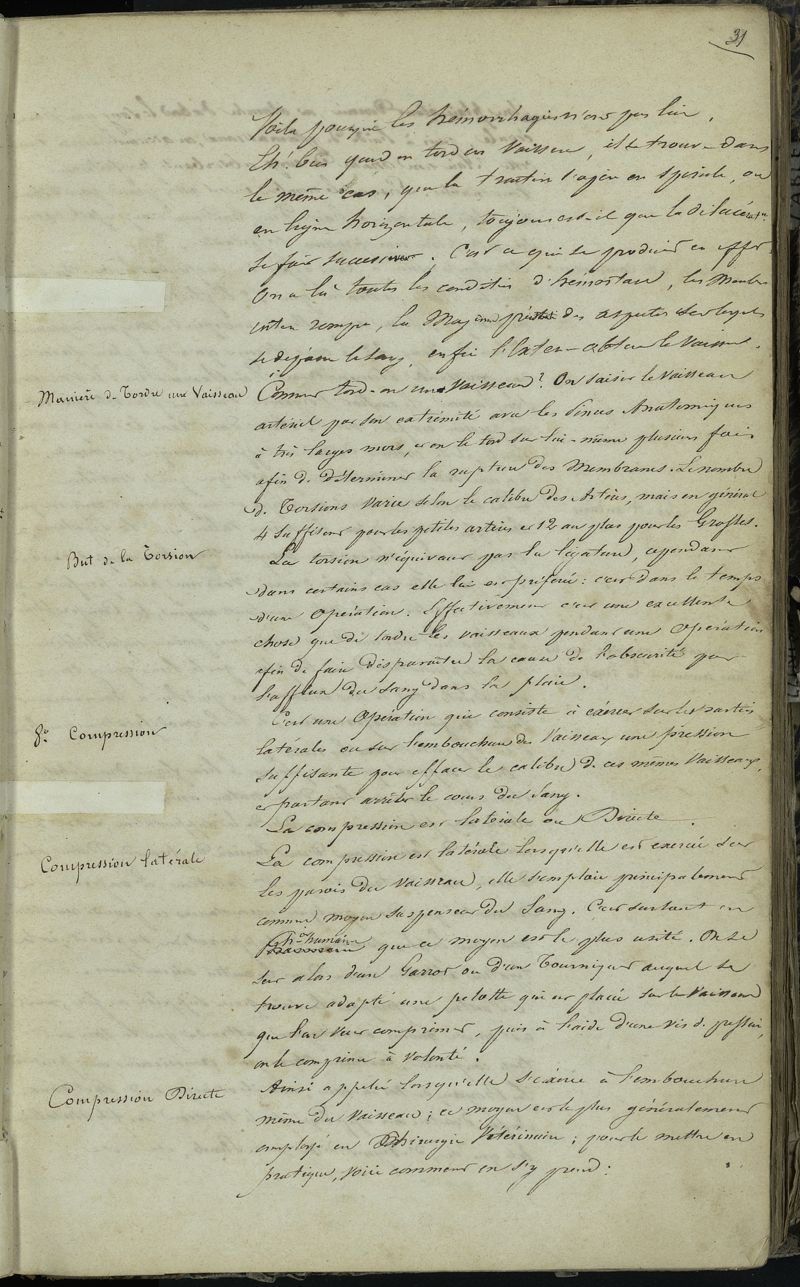 31
Voilà pourquoi les hémorrhagies n'ont pas lieu.
Eh! bien quand on tord un Vaisseau, il se trouve dans
le même cas, que la traction s'agisse en spirale, ou
en ligne horizontale, toujours est-il que la dilacérat.on
se fait successivet. C'est ce qui se produit en effet
On a là toutes les conditions d'hémostase, les Membres
internes rompues, la Moyenne présente des aspérités sur lesquels
se dépose le sang, enfin l'Externe obture le Vaisseau.
Manière de Tordre une Vaisseau
Comment tord-on un Vaisseau? On saisit le Vaisseau
artériel par son extrémité avec les Pinces Anatomiques
à très larges mors, et on le tord sur lui-même plusieurs fois
afin de déterminer la rupture des Membranes. Le nombre
de Torsions Varie selon le calibre des Artères, mais en général
4 suffisent pour les petites artères et 12 au plus pour les Grosses.
But de la Torsion
La torsion n'équivaut pas la ligature, cependant
dans certains cas elle lui est préférée: c'est dans le temps
d'une Opération. Effectivement c'est une excellente
chose que de tordre les vaisseaux pendant une Opération
afin de faire disparaître la cause de l'obscurité par
l'afflux du sang dans la plaie.
8.o Compression
C'est une Opération qui consiste à exercer sur les parties
latérales ou sur l'embouchure des Vaisseaux une pression
suffisante pour effacer le calibre de ces mêmes Vaisseaux,
et partant arrêter le cours du sang.
La compression est latérale ou Directe.
Compression latérale
La compression est latérale lorsqu'elle est exercée sur
les parois du Vaisseau, elle s'emploie principalement
comme moyen suspenseur du Sang. C'est surtout en
humaine que ce moyen est le plus usité. On se
sert alors d'un Garrot ou d'un Tourniquet auquel se
trouve adapté une pelotte qui est placée sur le Vaisseau
que l'on veut comprimer, puis à l'aide d'une vis de pression,
on le comprime à volonté.
Compression Directe
Ainsi appelée lorsqu'elle s'exerce à l'embouchure
même du Vaisseau; ce moyen est le plus généralement
employé en Chirurgie Vétérinaire; pour le mettre en
pratique, voici comment on s'y prend: